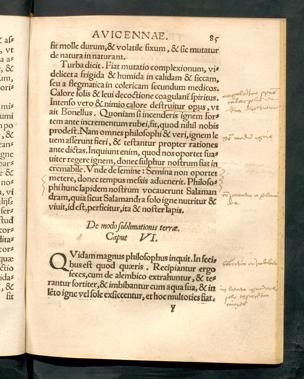 AVICENNAE. 85
fit molle durum, & volatile fixum, & sic mutatur
de natura in naturam.
Turba dicit. Fiat mutatio complexionum, vi-
delicet a frigida & humida in calidam & siccam,
seu a flegmatica in colericam secundum medicos.
Calore solis & leui decoctione coagulans spiritus.
Intenso vero & nimio calore destruitur opus, vt
ait Bonellus. Quoniam si incenderis ignem for-
tem ante incrementum rubei, fit, quod nihil nobis
prodest. Nam omnes philosophi & veri, ignem le
uem asserunt fieri, & testantur propter rationes
ante dictas. Inquiunt enim, quod nos oportet sua-
uiter regere ignem, donec sulphur nostrum fiat in
cremabile. Vnde de semine: Semina non oportet
metere, donec tempus messis aduenerit. Philoso-
phi hunc lapidem nostrum vocauerunt Salaman
dram, quia sicut Salamandra solo igne nutritur &
viuit, id est, perficitur, ita & noster lapis.
De modo sublimationis terræ.
Caput VI.
QVidam magnus philosophus inquit. In feci
bus est quod quæris. Recipiantur ergo
feces, cum de alembico extrahuntur, & te-
rantur fortiter, & imbibantur cum aqua sua, & in
lēto igne vel sole exsiccentur, et hoc multoties fiat,
Y